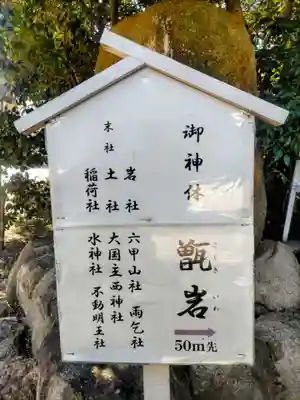 御神体
甑岩
こしき いわ
50m先
末社
岩社
土社
稲荷社
六甲山社 雨乞社
大国主西神社
水神社 不動明王社